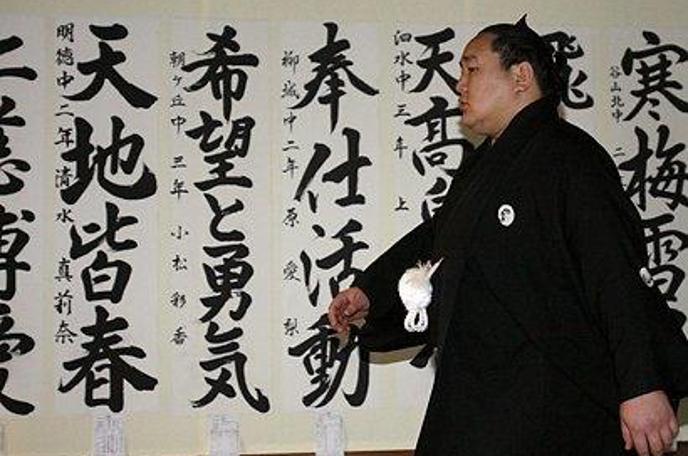 寒梅雪
谷山北中 二
飛
天高
泗水中三年 上
奉仕活動
柳城中二年 原 愛梨
希望と勇気
朝ヶ丘中 三年 小松彩香
天地皆春
明徳中二年 清水真莉奈
慈博愛